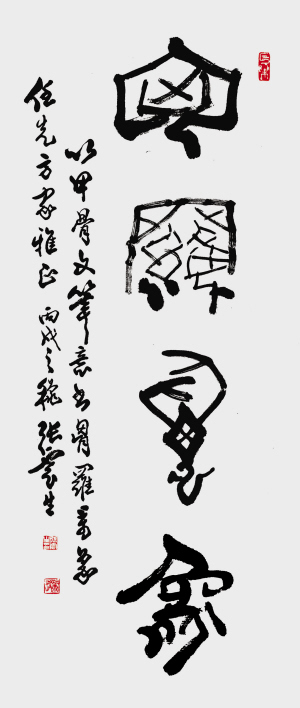 胷羅萬象
以甲骨文筆意書胷羅萬象
任先方家雅正 丙戌之秋 張震生